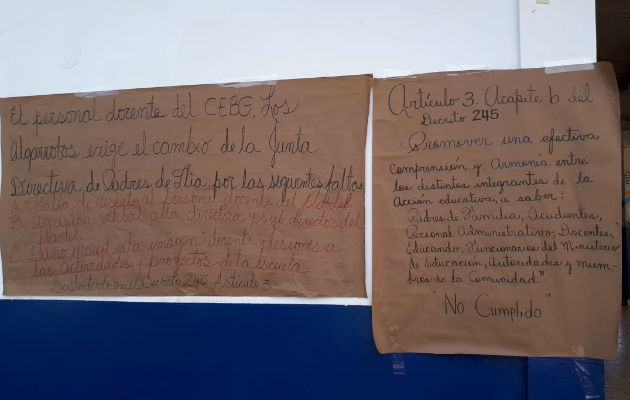 El personal docente del CEBG. Los
Algarrobos, exige el cambio de la Junta
Directiva de Padres de Flia, por las siguientes faltas
A- Falta de respeto al personal docente del plantel
B- Agresión verbal a la directora y sub director del
plantel
C- Daño moral a la imagen docente y lesiones a
las actividades y proyectos de la escuela
Sustentado en el Decreto 245 Artículo 3
Artículo 3. Acapite b del
Decreto 245
"Promover una efectiva
Comprensión y Armonía entre
los distintos integrantes de la
Acción educativa, a saber:
Padres de Familia, Acudientes,
Personal Administrativo, Docentes,
Educando, Funcionarios del Ministerio
de Educación, Autoridades y miem-
bros de la Comunidad"
"No Cumplido"